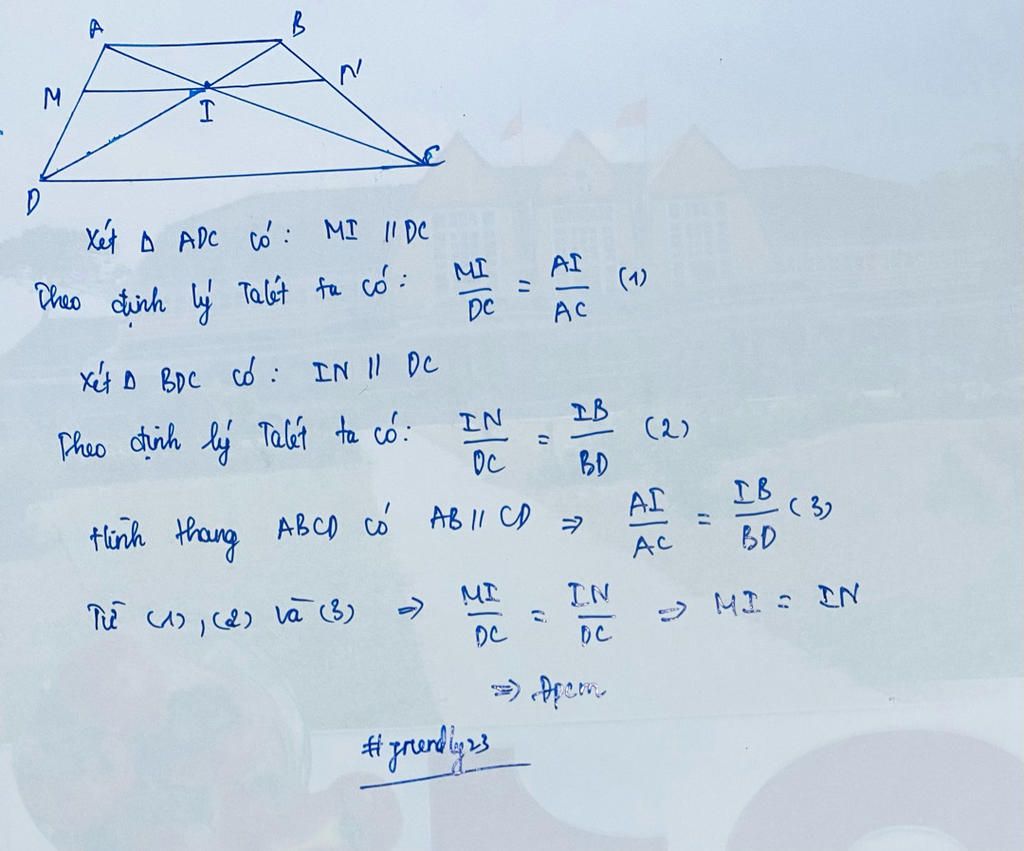 A B
M N
I
D C
Xét Δ ADC có: MI // DC
Theo định lý Talét ta có: MI/DC = AI/AC (1)
Xét Δ BDC có: IN // DC
Theo định lý Talét ta có: IN/DC = IB/BD (2)
Hình thang ABCD có AB // CD ⇒ AI/AC = IB/BD (3)
Từ (1), (2) và (3) ⇒ MI/DC = IN/DC ⇒ MI = IN
⇒ Đpcm